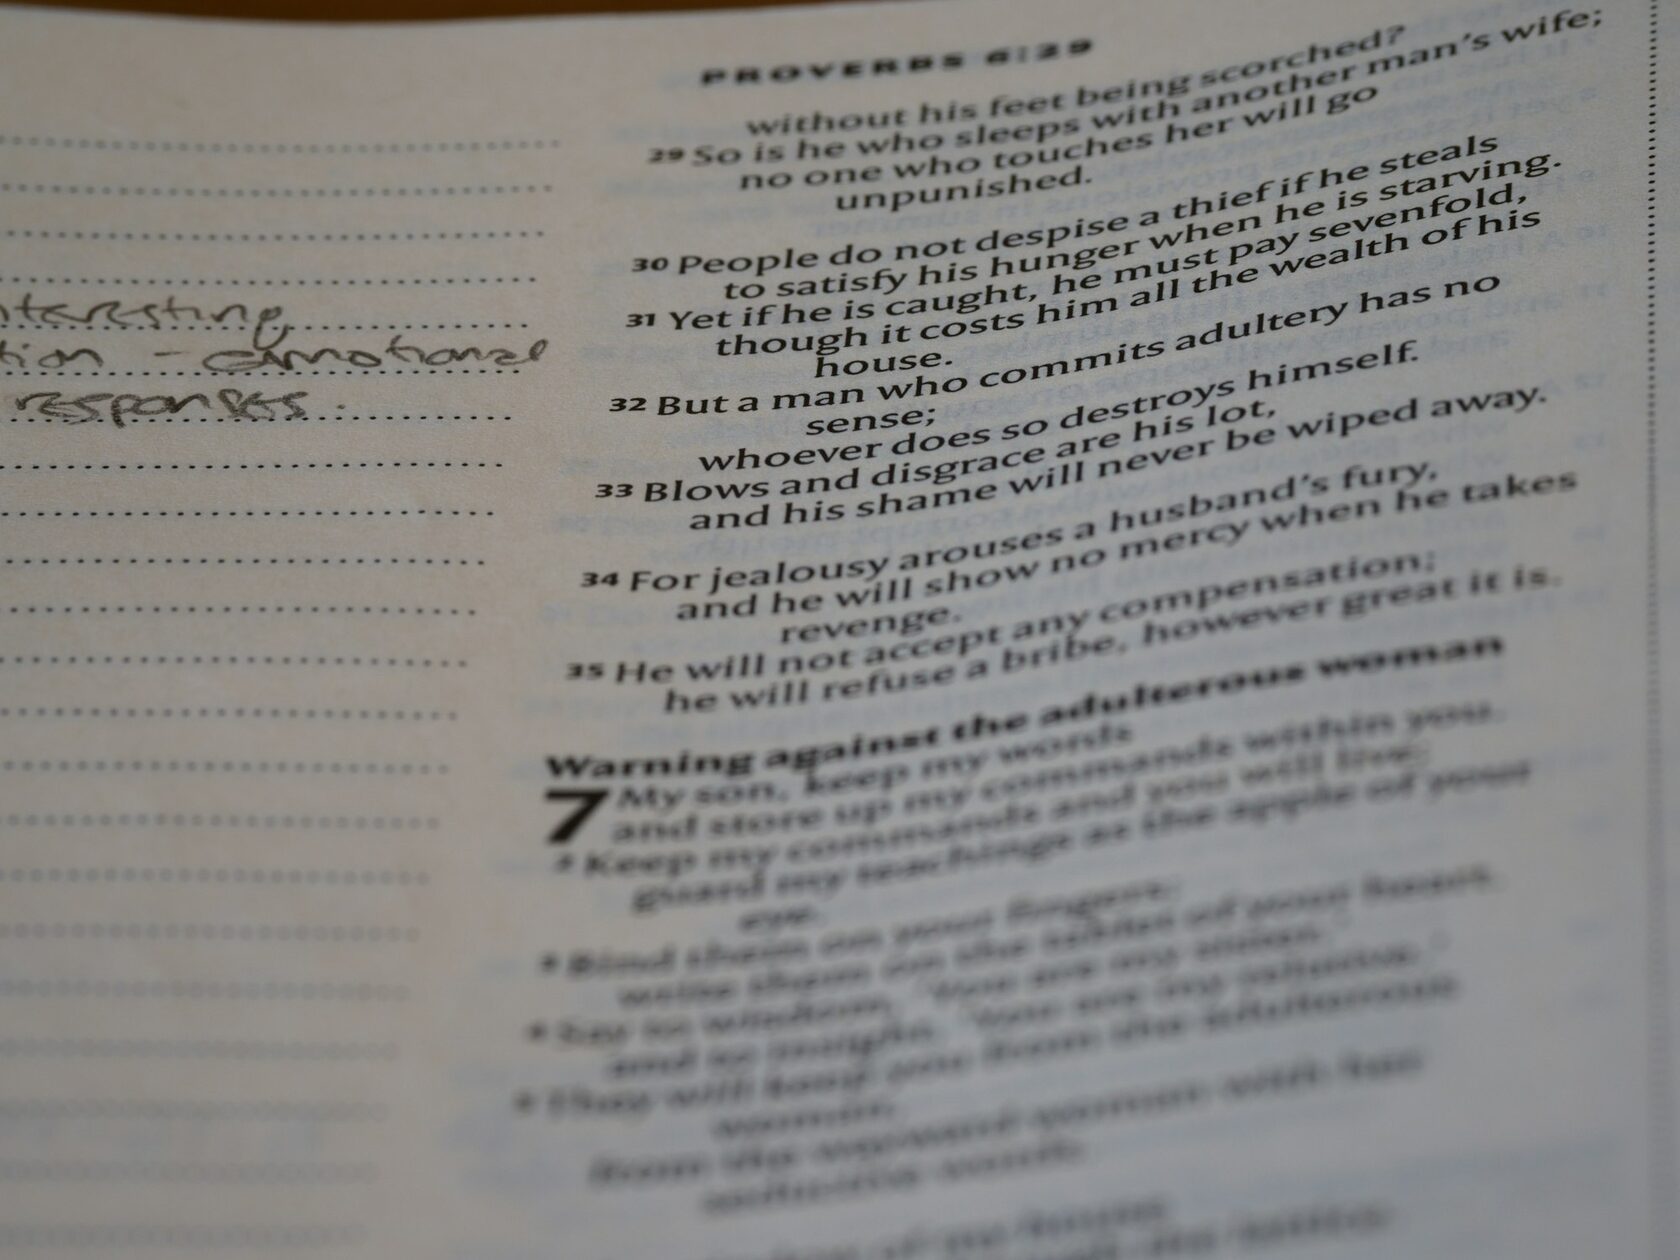 PROVERBS 6:29
without his feet being scorched?
29 So is he who sleeps with another man's wife;
no one who touches her will go
unpunished.
30 People do not despise a thief if he steals
to satisfy his hunger when he is starving.
31 Yet if he is caught, he must pay sevenfold,
though it costs him all the wealth of his
house.
32 But a man who commits adultery has no
sense;
whoever does so destroys himself.
33 Blows and disgrace are his lot,
and his shame will never be wiped away.
34 For jealousy arouses a husband's fury,
and he will show no mercy when he takes
revenge.
35 He will not accept any compensation;
he will refuse a bribe, however great it is.
Warning against the adulterous woman
7 My son, keep my words
and store up my commands within you.
2 Keep my commands and you will live;
guard my teachings as the apple of your
eye.
3 Bind them on your fingers;
write them on the tablet of your heart.
4 Say to wisdom, 'You are my sister,'
and to insight, 'You are my relative.'
5 They will keep you from the adulterous
woman,
from the wayward woman with her
seductive words.
nteresting
tion - emotional
responses.